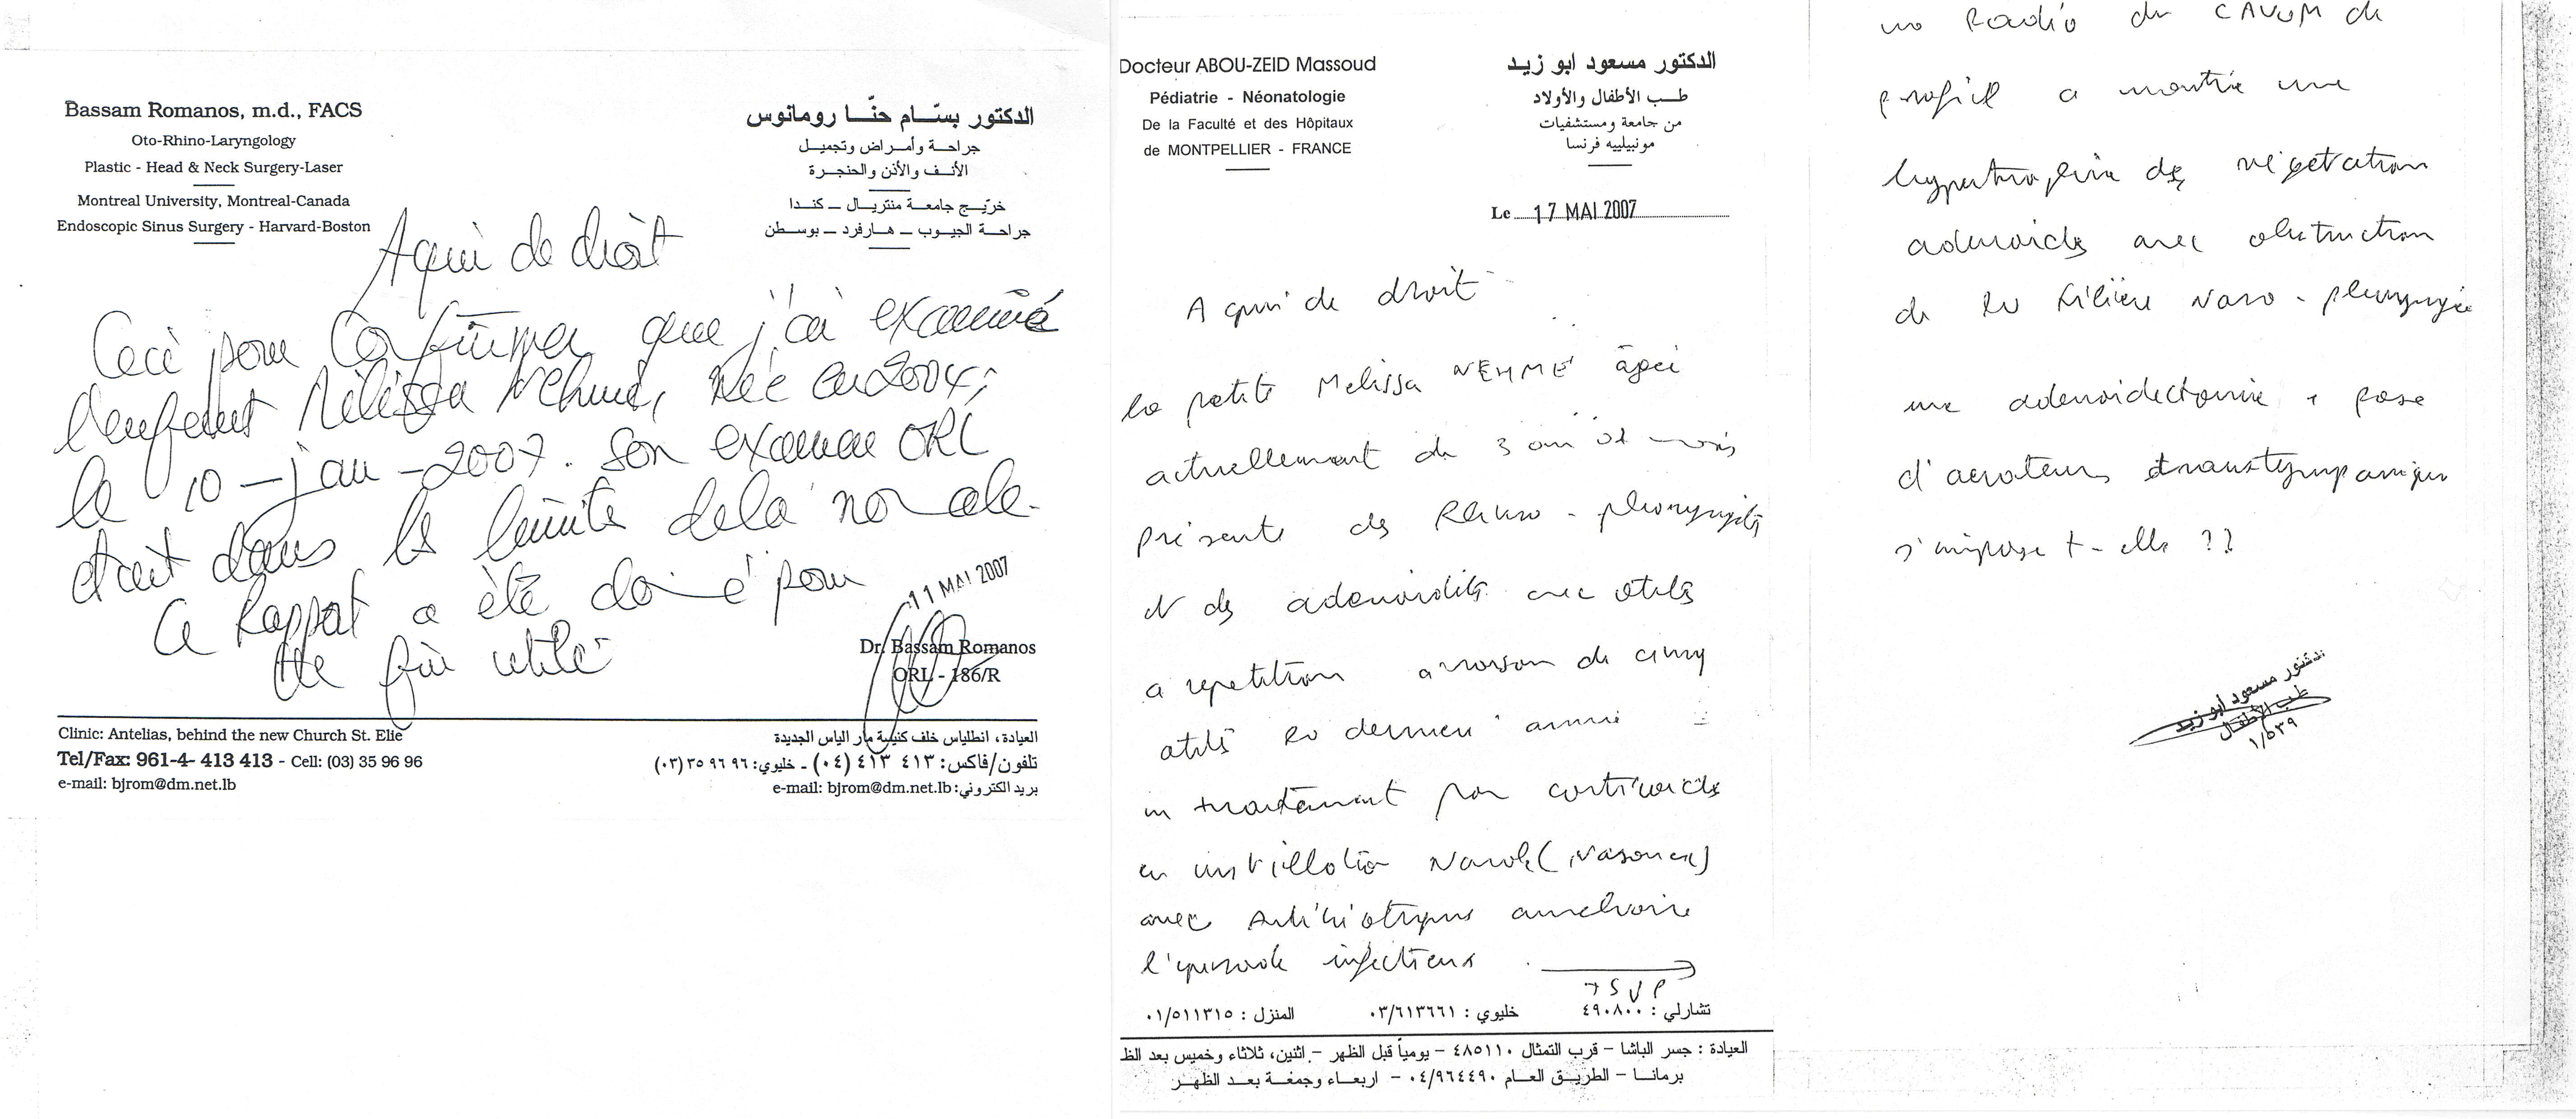 Bassam Romanos, m.d., FACS
Oto-Rhino-Laryngology
Plastic - Head & Neck Surgery-Laser
Montreal University, Montreal-Canada
Endoscopic Sinus Surgery - Harvard-Boston
الدكتور بسّام حنّا رومانوس
جراحة وأمراض وتجميل
الأنف والأذن والحنجرة
خرّيج جامعة منتريال – كندا
جراحة الجيوب – هارفرد – بوسطن
A qui de droit
Ceci pour Confirmer que j'ai examiné
l'enfant Mélissa Nehmé, Née en 2004;
le 10 - jan - 2007. Son examen ORL
était dans les limite de la normale.
Ce Rapport a été donné pour
fin utile
11 MAI 2007
Dr. Bassam Romanos
ORL - 186/R
Clinic: Antelias, behind the new Church St. Elie
Tel/Fax: 961-4- 413 413 - Cell: (03) 35 96 96
e-mail: bjrom@dm.net.lb
العيادة، انطلياس خلف كنيسة مار الياس الجديدة
تلفون/فاكس: ٤١٣ ٤١٣ (٠٤) ـ خليوي: ٩٦ ٩٦ ٣٥ (٠٣)
بريد الكتروني: e-mail: bjrom@dm.net.lb
Docteur ABOU-ZEID Massoud
Pédiatrie - Néonatologie
De la Faculté et des Hôpitaux
de MONTPELLIER - FRANCE
الدكتور مسعود ابو زيد
طب الأطفال والأولاد
من جامعة ومستشفيات
مونبيلييه فرنسا
Le 17 MAI 2007
A qui de droit
la petite Melissa NEHME âgée
actuellement de 3 ans et mois
présente des Rhino-pharyngites
et des adenoidites avec otites
a repetition a raison de cinq
otites la derniere année
un traitement par corticoids
en instillation Nasale (Nasonex)
avec Antibiotiques ameliore
l'episode infectieux
TSVP
تشارلي : ٤٩٠٨٠٠
خليوي : ٠٣/٦١٣٦٦١
المنزل : ٠١/٥١١٣١٥
العيادة : جسر الباشا – قرب التمثال ٤٨٥١١٠ – يومياً قبل الظهر – اثنين، ثلاثاء وخميس بعد الظ
برمانا – الطريق العام ٠٤/٩٦٤٤٩٠ – اربعاء وجمعة بعد الظهر
un Radio du CAVUM de
profil a montré une
hypertrophie des végétation
adenoids avec obstruction
de la filière Naso-pharyngée
une adenoidectomie + pose
d'aerateurs transtympanique
s'impose t-elle ??
الدكتور مسعود ابو زيد
طب الأطفال
١/٥٣٩